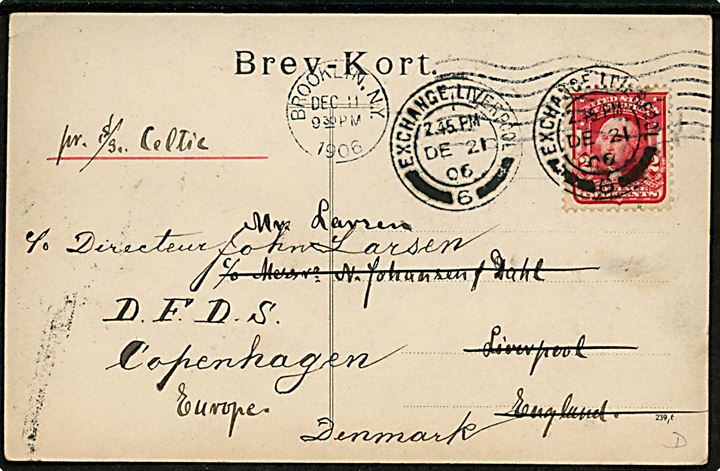 Brev-Kort.
BROOKLYN, N.Y.
DEC 11
9 30 PM
1906
EXCHANGE, LIVERPOOL
2.45 PM
DE 21
06
6
EXCHANGE, LIVERPOOL
2.45 PM
DE 21
06
6
pr. S/S. Celtic
Mr. Larsen
c/o Directeur John Larsen
c/o Messrs N. Johansen & Dahl
D. F. D. S.
Copenhagen
Liverpool
Europe.
England.
Denmark
239, t
D